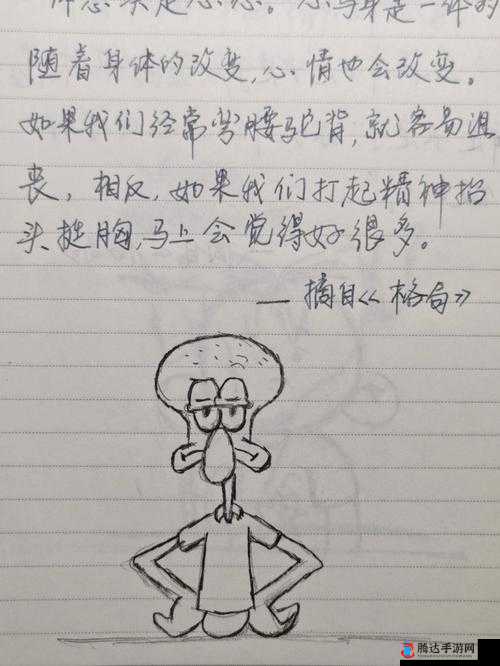 心与身是一体的
随着身体的改变,心情也会改变。
如果我们经常弯腰驼背,就容易沮
丧,相反,如果我们打起精神抬
头挺胸,马上会觉得好很多。
——摘自《格局》
腾达手游网